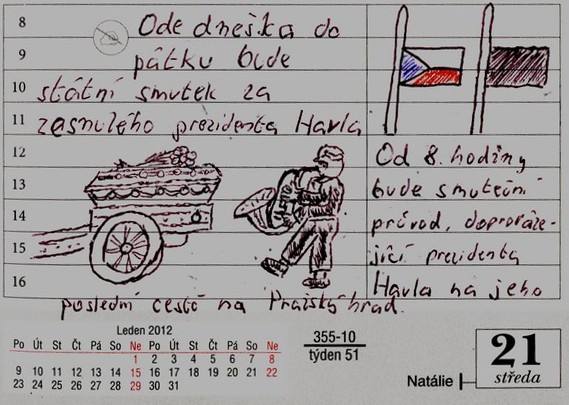 8
Ode dneška do
9
pátku bude
10
státní smutek za
11
zesnulého prezidenta Havla
12
13
14
15
16
Od 8. hodiny
bude smuteční
průvod, doprováze-
jící prezidenta
Havla na jeho
poslední cestě na Pražský hrad.
Leden 2012
Po Út St Čt Pá So Ne Po Út St Čt Pá So Ne
1 2 3 4 5 6 7 8
9 10 11 12 13 14 15 16 17 18 19 20 21 22
23 24 25 26 27 28 29 30 31
355-10
týden 51
Natálie
21
středa